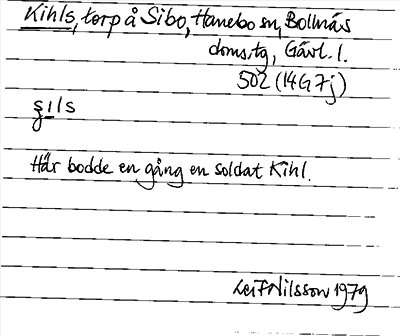 Kihls, torp å Sibo, Hanebo sn, Bollnäs
doms.tg, Gävl. l.
502 (14G7j)
şıls
Här bodde en gång en soldat Kihl.
Leif Nilsson 1979